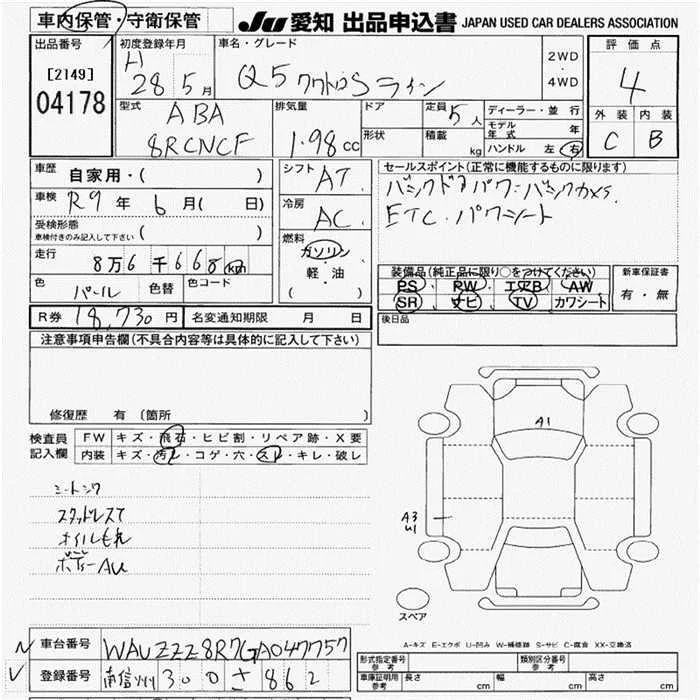 車内保管・守衛保管
JU 愛知 出品申込書 JAPAN USED CAR DEALERS ASSOCIATION
出品番号
[2149]
04178
初度登録年月
H 28 5月
車名・グレード
Q5 クワトロSライン
2WD
・
4WD
評価点
4
外装 内装
C B
型式
ABA
8RCNCF
排気量
1.98cc
ドア
形状
定員 5人
積載 kg
ディーラー・並行
モデル年式 年
ハンドル 左 右
車歴 自家用・( )
車検 R9年 6月( 日)
受検形態
車検付きのみ記入して下さい ( )
走行 8万6千668km
色 パール 色替 色コード
シフト AT
冷房 AC
燃料
ガソリン
・
軽・油
( )
セールスポイント(正常に機能するものに限ります)
ETC.パワーシート
装備品(純正品に限り○をつけてください)
PS PW エアB AW
SR ナビ TV カワシート
新車保証書
有・無
R券 18,730円 名変通知期限 月 日
後日品
注意事項申告欄(不具合内容等は具体的に記入して下さい)
修復歴 有 〔箇所 〕
検査員記入欄
FW キズ・飛石・ヒビ割・リペア跡・X要
内装 キズ・汚レ・コゲ・穴・スレ・キレ・破レ
スタッドレスT
オイルもれ
A1
A3
U1
スペア
A-キズ E-エクボ U-凹み W-補修跡 S-サビ C-腐食 XX-交換済
車台番号 WAUZZZ8R7GA047757
登録番号 300 さ 862
型式指定番号 参考
類別区分番号 参考
車庫証明用 参考 長さ cm 幅 cm 高さ cm